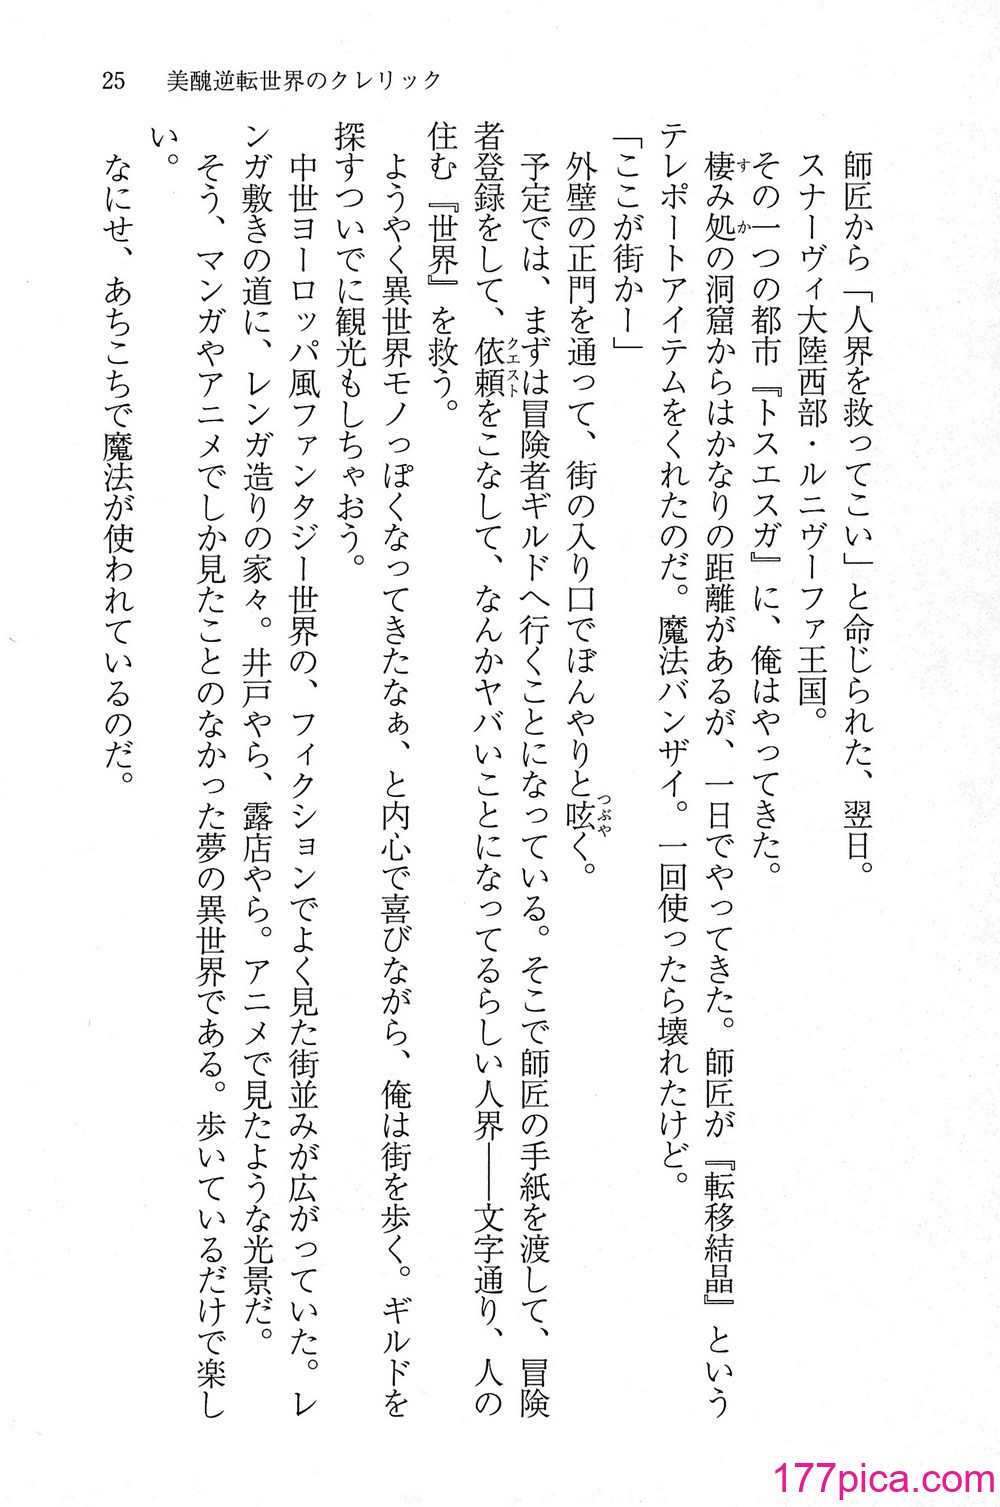 25　美醜逆転世界のクレリック
師匠から「人界を救ってこい」と命じられた、翌日。
スナーヴィ大陸西部・ルニヴーファ王国。
その一つの都市『トスエスガ』に、俺はやってきた。
棲み処の洞窟からはかなりの距離があるが、一日でやってきた。師匠が『転移結晶』という
テレポートアイテムをくれたのだ。魔法バンザイ。一回使ったら壊れたけど。
「ここが街かー」
外壁の正門を通って、街の入り口でぼんやりと呟く。
予定では、まずは冒険者ギルドへ行くことになっている。そこで師匠の手紙を渡して、冒険
者登録をして、依頼をこなして、なんかヤバいことになってるらしい人界――文字通り、人の
住む『世界』を救う。
ようやく異世界モノっぽくなってきたなぁ、と内心で喜びながら、俺は街を歩く。ギルドを
探すついでに観光もしちゃおう。
中世ヨーロッパ風ファンタジー世界の、フィクションでよく見た街並みが広がっていた。レ
ンガ敷きの道に、レンガ造りの家々。井戸やら、露店やら。アニメで見たような光景だ。
そう、マンガやアニメでしか見たことのなかった夢の異世界である。歩いているだけで楽し
い。
なにせ、あちこちで魔法が使われているのだ。
すか
つぶや
クエスト
177pica.com